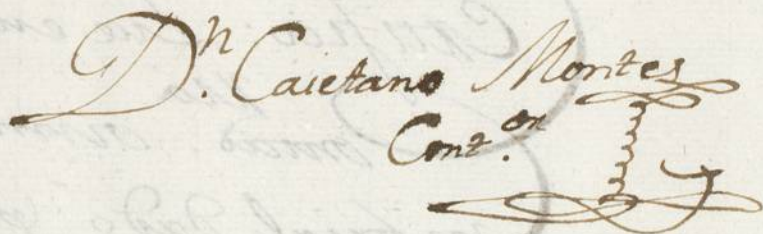 D.n Caietano Montes
Cont.on